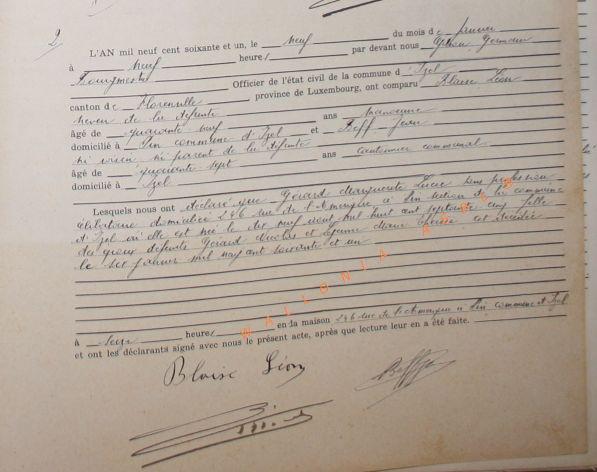 2
L'AN mil neuf cent soixante et un, le neuf du mois de janvier
à neuf heures par devant nous Germain
Bourgmestre Officier de l'état civil de la commune d'Izel
canton de Florenville province de Luxembourg, ont comparu Blaise Léon
neveu de la défunte
âgé de quarante neuf ans manoeuvre
domicilié à Pin commune d'Izel et Boff Jean
ni voisin ni parent de la défunte
âgé de quarante sept ans cantonnier communal
domicilié à Izel
Lesquels nous ont déclaré que Gérard Marguerite Lucie sans profession
célibataire domiciliée 246 rue de l'Amérique à Pin section de la commune
d'Izel où elle est née le dix neuf août mil huit cent septante cinq fille
des époux défunts Gérard Nicolas et Marie est décédée
le sept janvier mil neuf cent soixante et un
WALLONIA
à heures en la maison 246 rue de l'Amérique à Pin commune d'Izel
et ont les déclarants signé avec nous le présent acte, après que lecture leur en a été faite.
Blaise Léon